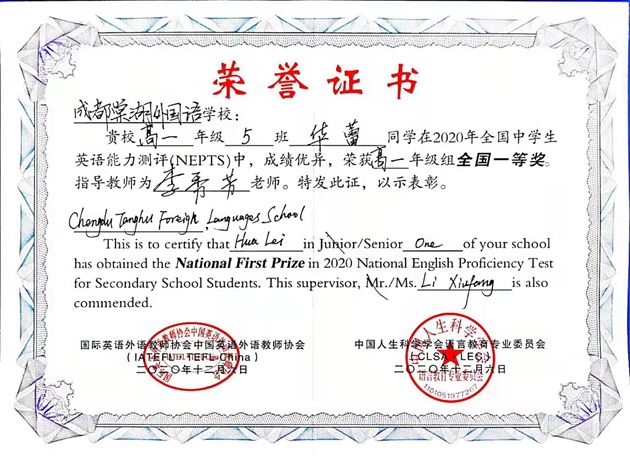 荣誉证书
成都棠湖外国语学校：
贵校高一年级5班华蕾同学在2020年全国中学生
英语能力测评(NEPTS)中，成绩优异，荣获高一年级组全国一等奖。
指导教师为李秀芳老师。特发此证，以示表彰。
Chengdu Tanghu Foreign Languages School
This is to certify that Hua Lei in Junior/Senior One of your school
has obtained the National First Prize in 2020 National English Proficiency Test
for Secondary School Students. This supervisor, Mr./Ms. Li Xiufang is also
commended.
国际英语外语教师协会中国英语外语教师协会
(IATEFL TEFL China)
二〇二〇年十二月六日
中国人生科学学会语言教育专业委员会
(CLSA LEC)
二〇二〇年十二月六日
中国人生科学学会
语言教育专业委员会
1101051977267